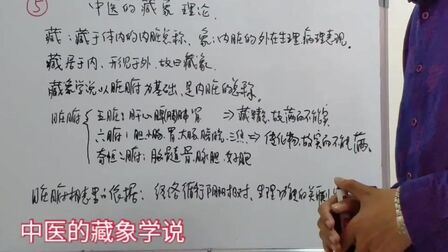 ⑤
中医的藏象理论.
藏：藏于体内的内脏总称、象：内脏的外在生理病理表现.
藏居于内、形见于外、故曰藏象.
藏象学说以脏腑为基础、是内脏的总称.
脏腑
五脏：肝心脾肺肾 ⇒ 藏精气.故满而不能实
六腑：胆小肠.胃大肠膀胱.三焦 ⇒ 传化物.故实而不能满.
奇恒之腑：脑髓骨.脉胆.女子胞
脏腑相表里的依据：经络循行阴阳相对、生理功能的
中医的藏象学说